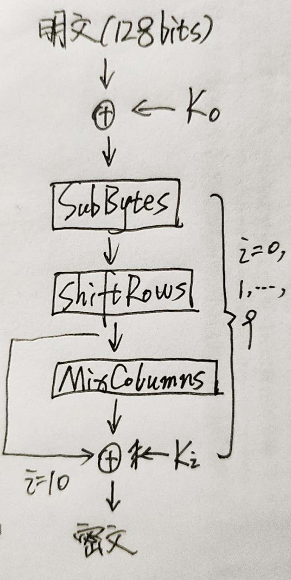 明文(128bits)
⊕ ← K₀
SubBytes
ShiftRows
MixColumns
i=0,
1,…,
9
⊕ ← Kᵢ
i=10
密文